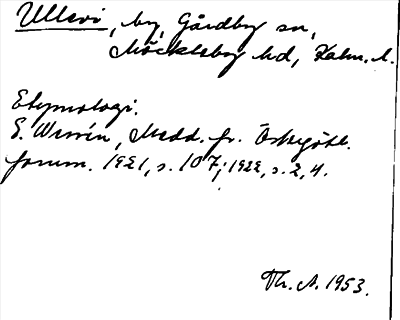 Ullevi, by, Gårdby sn,
Möckleby hd, Kalm. l.
Etymologi.
E. Wessén, Medd. fr. Östergötl.
fornm. 1921, s. 107; 1922, s. 2, 4.
Th. A. 1953.